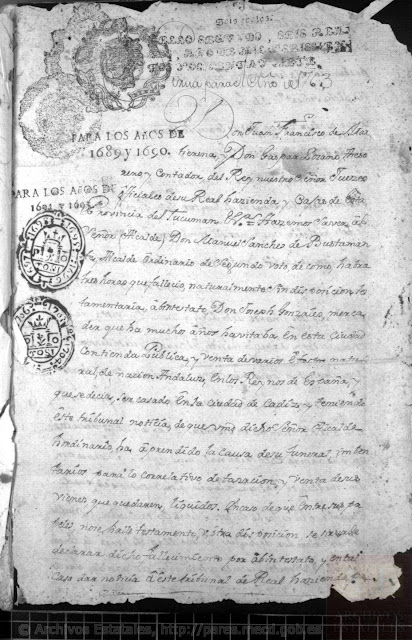 Seis reales.
SELLO SEGVNDO, SEIS REALES
PARA LOS AÑOS DE
1689 Y 1690.
PARA LOS AÑOS DE
1691 Y 1693
Don Juan Francisco de
herena, y Don Gaspar
rero y Contador del Rey nuestro Señor Juezes
oficiales de su Real hazienda y Caja de esta
Provincia del Tucuman Hazemos saver, al
Señor Alcalde, Don Manuel Sanches de Bustaman
te, Alcalde Ordinario de segundo voto de como, habra
tres horas que fallecio, naturalmente sin disposicion, tes
tamentaria, abintestato, Don Joseph Gonzales, merca
der que ha mucho años havitaba en esta Ciudad
Con tienda Publica, y venta de varios efectos natu
ral, de nacion Andaluz, en los Reynos de España, y
que se dize, ser casado en la Ciudad de Cadiz, y teniendo
este tribunal noticia, de que Vmd. dicho Señor Alcalde
hordinario, ha aprendido la Causa de su funeral, imben
tarios para lo correlativo de tasacion, y venta de sus
vienes que quedaren, liquidos. En caso de que entre sus pa
peles no se, halle testamento, u otra disposicion se
declarar dicho fallecimiento por abintestato, y en tal
Caso dar noticia a este tribunal de Real hazienda
© Archivos Estatales, http://pares.mecd.gob.es